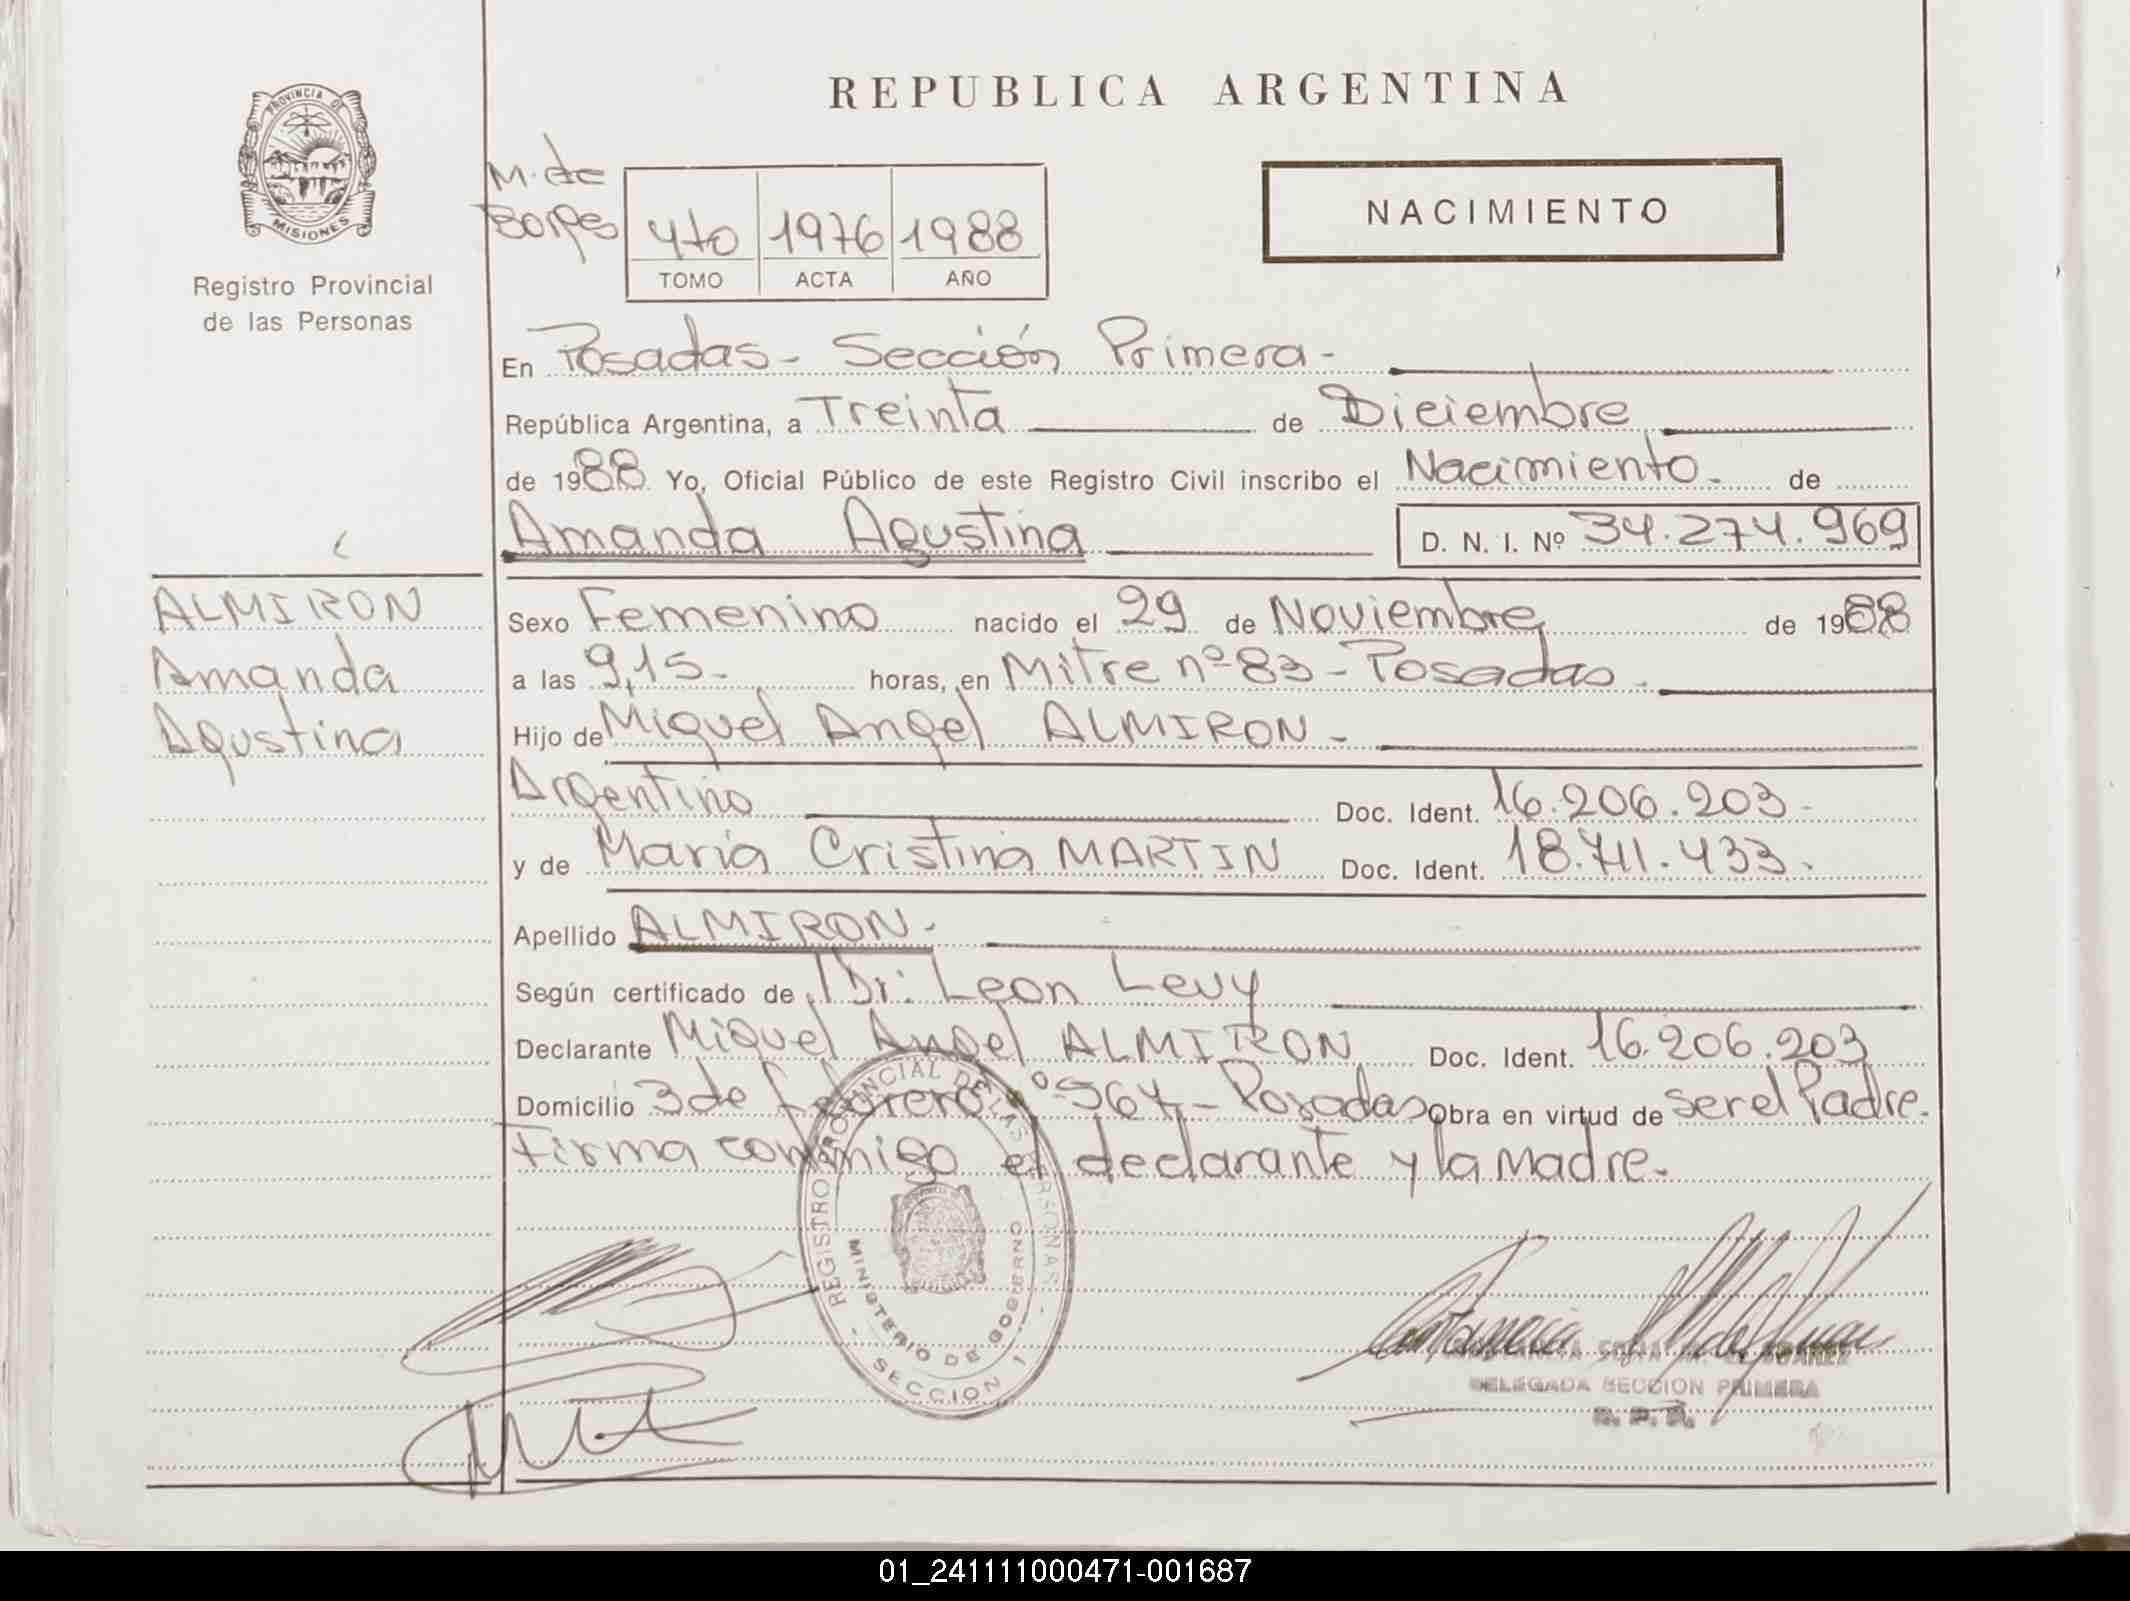 REPUBLICA ARGENTINA
PROVINCIA DE
MISIONES
Registro Provincial
de las Personas
M. de
Borges
4to 1976 1988
TOMO ACTA AÑO
NACIMIENTO
En Posadas - Sección Primera -
República Argentina, a Treinta de Diciembre
de 1988 Yo, Oficial Público de este Registro Civil inscribo el Nacimiento. de
Amanda Agustina D. N. I. Nº 34.274.969
ALMIRON
Amanda
Agustina
Sexo Femenino nacido el 29 de Noviembre de 1988
a las 9,15- horas, en Mitre nº 83 - Posadas.
Hijo de Miguel Angel ALMIRON -
Argentino Doc. Ident. 16.206.203 -
y de Maria Cristina MARTIN Doc. Ident. 18.711.433.
Apellido ALMIRON.
Según certificado de Dr: Leon Levy
Declarante Miguel Angel ALMIRON Doc. Ident. 16.206.203
Domicilio 3 de febrero nº 564 - Posadas Obra en virtud de ser el Padre.
Firma conmigo el declarante y la Madre.
REGISTRO PROVINCIAL DE LAS PERSONAS -
MINISTERIO DE GOBIERNO
- SECCION 1
DELEGADA SECCION PRIMERA
R. P. P.
01_241111000471-001687